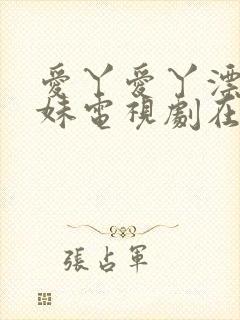 愛丫愛丫漂
妹電視劇在
張占軍